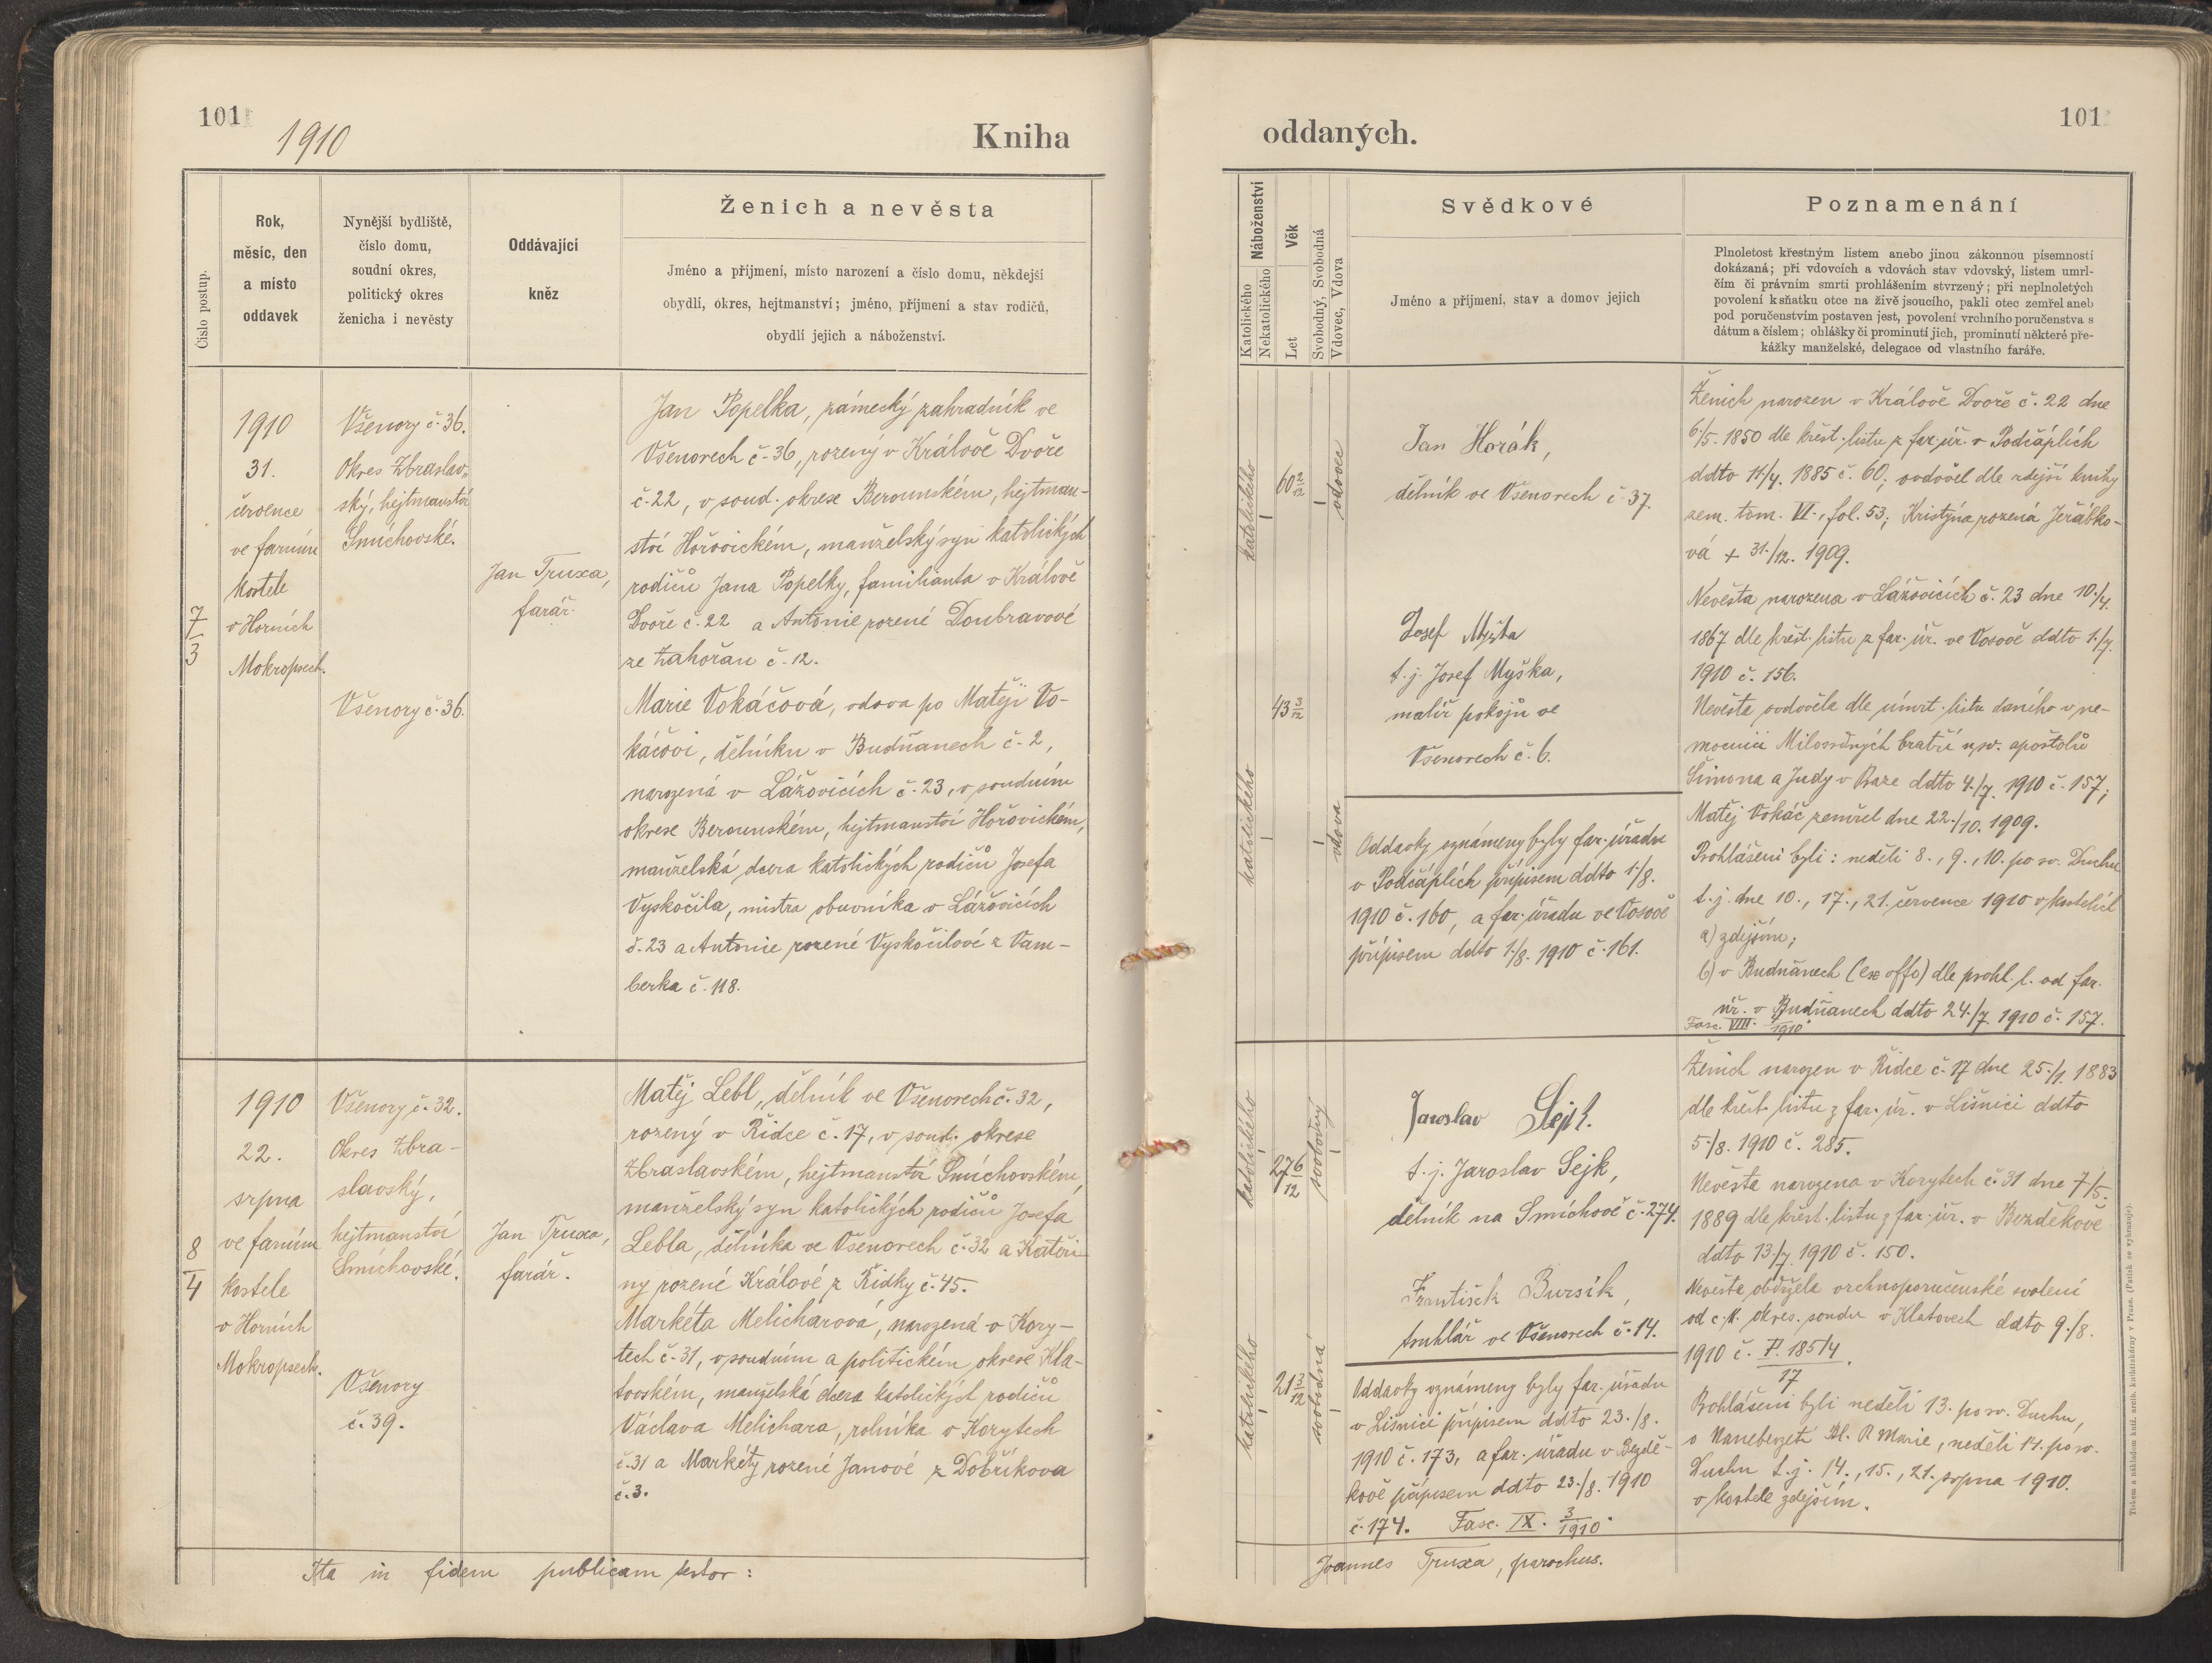 101
1910
Kniha
Číslo postup.
Rok,
měsíc, den
a místo
oddavek
Nynější bydliště,
číslo domu,
soudní okres,
politický okres
ženicha i nevěsty
Oddávající
kněz
Ženich a nevěsta
Jméno a příjmení, místo narození a číslo domu, někdejší
obydlí, okres, hejtmanství; jméno, příjmení a stav rodičů,
obydlí jejich a náboženství.
7
3
1910
31.
července
ve farním
kostele
v Horních
Mokropsech.
Všenory č. 36.
Okres Zbraslav„
ský, hejtmanství
Smíchovské.
Všenory č. 36.
Jan Truxa,
farář.
Jan Popelka, zámecký zahradník ve
Všenorech č. 36, rozený v Králově Dvoře
č. 22, v soud. okrese Berounském, hejtman-
ství Hořovickém, manželský syn katolických
rodičů Jana Popelky, familianta v Králově
Dvoře č. 22 a Antonie rozené Doubravové
ze Zahořan č. 12.
Marie Vokáčová, vdova po Matěji Vo-
káčovi, dělníku v Budňanech č. 2,
narozená v Lážovicích č. 23, v soudním
okrese Berounském, hejtmanství Hořovickém,
manželská dcera katolických rodičů Josefa
Vyskočila, mistra obuvníka v Lážovicích
č. 23 a Antonie rozené Vyskočilové z Vam-
berka č. 118.
8
4
1910
22.
srpna
ve farním
kostele
v Horních
Mokropsech.
Všenory č. 32.
Okres Zbra-
slavský,
hejtmanství
Smíchovské.
Všenory
č. 39.
Jan Truxa,
farář.
Matěj Lebl, dělník ve Všenorech č. 32,
rozený v Řidce č. 17, v soud. okrese
Zbraslavském, hejtmanství Smíchovském,
manželský syn katolických rodičů Josefa
Lebla, dělníka ve Všenorech č. 32 a Kateři-
ny rozené Králové z Řidky č. 45.
Markéta Melicharová, narozená v Kory-
tech č. 31, v soudním a politickém okrese Kla-
tovském, manželská dcera katolických rodičů
Václava Melichara, rolníka v Korytech
č. 31 a Markéty rozené Janové z Dobříkova
č. 3.
Ita in fidem publicam testor:
101
oddaných.
Náboženství
Katolického
Nekatolického
Věk
Let
Svobodný, Svobodná
Vdovec, Vdova
Svědkové
Jméno a příjmení, stav a domov jejich
Poznamenání
Plnoletost křestným listem anebo jinou zákonnou písemností
dokázaná; při vdovcích a vdovách stav vdovský, listem úmrt-
čím či právním smrti prohlášením stvrzený; při neplnoletých
povolení k sňatku otce na živě jsoucího, pakli otec zemřel aneb
pod poručenstvím postaven jest, povolení vrchního poručenstva s
dátum a číslem; ohlášky či prominutí jich, prominutí některé pře-
kážky manželské, delegace od vlastního faráře.
katolického
60 2/12
vdovec
Jan Horák,
dělník ve Všenorech č. 37.
Josef Myška
t. j. Josef Myška,
malíř pokojů ve
Všenorech č. 6.
katolického
43 3/12
vdova
Oddavky oznámeny byly far. úřadu
v Podčáplích přípisem ddto 1./8.
1910 č. 160, a far. úřadu ve Vosově
přípisem ddto 1./8. 1910 č. 161.
Ženich narozen v Králově Dvoře č. 22 dne
6./5. 1850 dle křest. listu z far. úř. v Podčáplích
ddto 11./4. 1885 č. 60; ovdověl dle zdejší knihy
zem. tom. VI., fol. 53; Kristýna rozená Jeřábko-
vá + 31./12. 1909.
Nevěsta narozena v Lážovicích č. 23 dne 10./4.
1867 dle křest. listu z far. úř. ve Vosově ddto 1./7.
1910 č. 156.
Nevěsta ovdověla dle úmrt. listu daného v ne-
mocnici Milosrdných bratří u sv. apoštolů
Šimona a Judy v Praze ddto 4./7. 1910 č. 157;
Matěj Vokáč zemřel dne 22./10. 1909.
Prohlášeni byli: neděli 8., 9., 10. po sv. Duchu
t. j. dne 10., 17., 21. července 1910 v kostelích
a) zdejším;
b) v Budňanech (ex offo) dle prohl. l. od far.
úř. v Budňanech ddto 24./7. 1910 č. 157.
Fasc. VIII. 1910
katolického
27 6/12
svobodný
Jaroslav Sejk.
t. j. Jaroslav Sejk,
dělník na Smíchově č. 274.
František Bursík,
truhlář ve Všenorech č. 14.
katolického
21 3/12
svobodná
Oddavky oznámeny byly far. úřadu
v Líšnici přípisem ddto 23./8.
1910 č. 173, a far. úřadu v Bezdě-
kově přípisem ddto 23./8. 1910
č. 174. Fasc. IX. 3/1910.
Ženich narozen v Řidce č. 17 dne 25./1. 1883
dle křest. listu z far. úř. v Líšnici ddto
5./8. 1910 č. 285.
Nevěsta narozena v Korytech č. 31 dne 7/5.
1889 dle křest. listu z far. úř. v Bezděkově
ddto 13./7. 1910 č. 150.
Nevěsta obdržela vrchnoporučenské svolení
od c. k. okres. soudu v Klatovech ddto 9./8.
1910 č. P. 185/4
17
Prohlášeni byli neděli 13. po sv. Duchu,
o Nanebevzetí Bl. P. Marie, neděli 14. po sv.
Duchu t. j. 14., 15., 21. srpna 1910.
v kostele zdejším.
Joannes Truxa, parochus.